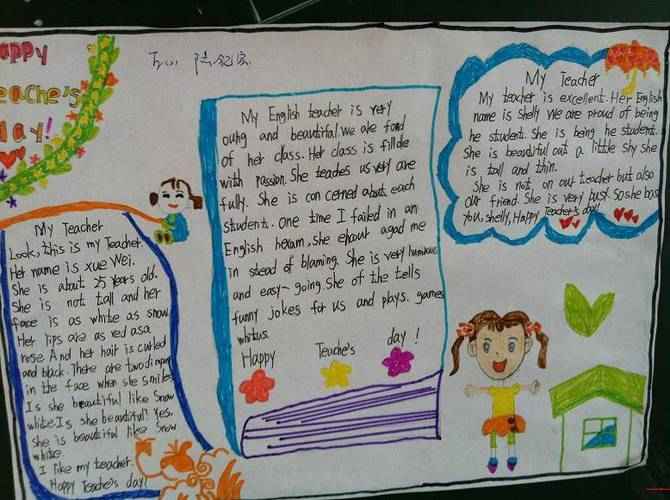 Happy
Teache's
day!
My Teacher
Look, this is my Teacher.
Her name is xue Wei.
She is about 25 years old.
She is not tall and her
face is as white as snow
Her lips are as red as a
rose. And her hair is curled
and black. There are two dimp
in the face when she smiles
Is she beautiful like snow
white. Is she beautiful? Yes,
she is beautiful like snow
white.
I like my teacher.
Happy Teache's day!
My English teacher is very
oung and beautiful. we are fond
of her class. Her class is fillde
with passion. She teaches us very are
fully. She is con cerned about each
student. One time I failed in an
English, she agad me
in stead of blaming. She is very
and easy-going. She of the tells
funny jokes for us and plays. games
whitus.
Happy Teache's day!
My Teacher
My teacher is excellent. Her English
name is shelly we are proud of being
he student. She is being he student.
She is beautiful out a little shy she
is tall and thin.
She is not, on our teacher but also
our friend. She is very busy. So she
you, shelly, Happy Teacher's day!